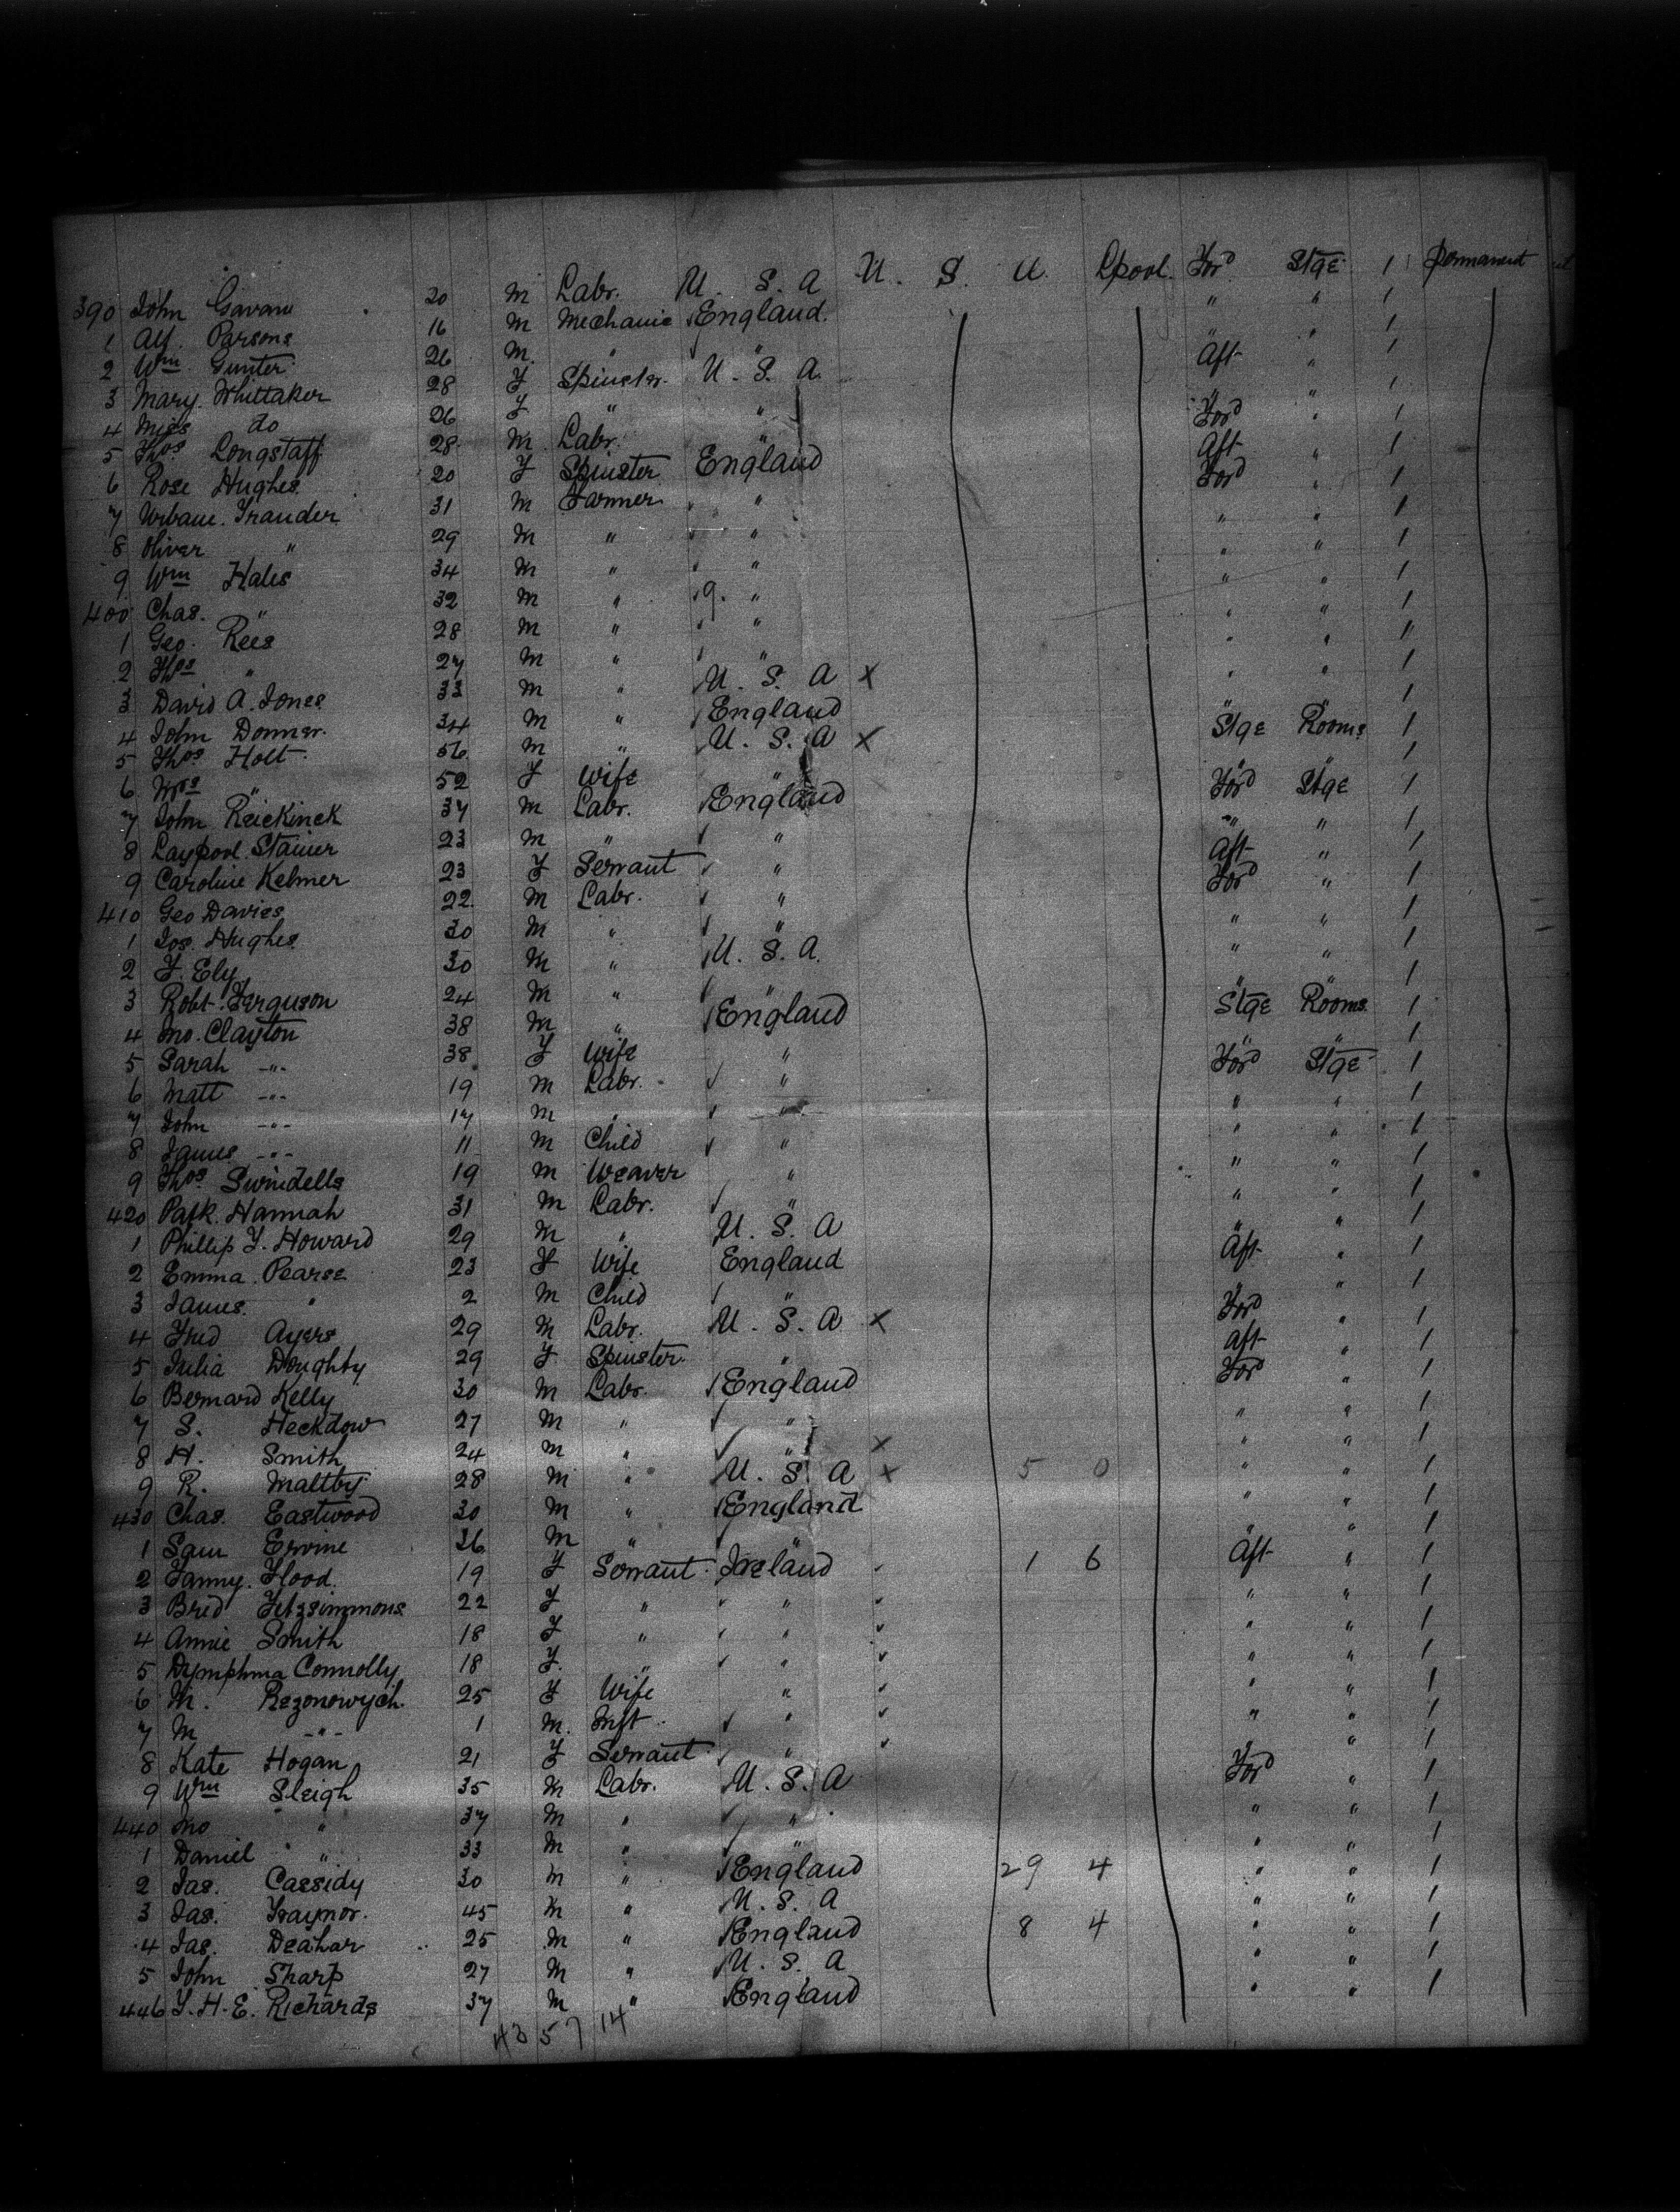 390 John Gavan 20 m Labr. U. S. A U. S. U. Lpool. Ford Stge 1 permanent
1 Alf. Parsons 16 m Mechanic England. " " 1
2 Wm Gunter 26 m. " " " " 1
3 Mary. Whittaker 28 F Spinster. U. S. A. Aft " 1
4 Miss do 26 F " " " " 1
5 Thos Longstaff 28 m Labr. " Ford " 1
6 Rose Hughes 20 F Spinster England Aft " 1
7 Urbane. Trauder 31 m Farmer " Ford " 1
8 Oliver " 29 m " " " " 1
9 Wm Hales 34 m " " " " 1
400 Chas. " 32 m " " " " 1
1 Geo. Rees 28 m " " " " 1
2 Thos " 27 m " " " " 1
3 David A. Jones 33 m " U. S. A X " " 1
4 John Donner. 34 m " England " " 1
5 Thos Holt 56 m " U. S. A X Stge Rooms 1
6 Mrs " 52 F Wife " " " 1
7 John Reickinek 37 m Labr. England Ford Stge 1
8 Laypool. Stainer 23 m " " " " 1
9 Caroline Kelmer 23 F Servant " Aft " 1
410 Geo Davies 22 m Labr. " Ford " 1
1 Jos. Hughes 30 m " " " " 1
2 F. Ely 30 m " U. S. A. " " 1
3 Robt. Ferguson 24 m " " " " 1
4 Jno. Clayton 38 m " England Stge Rooms 1
5 Sarah -"- 38 F Wife " " " 1
6 Matt -"- 19 m Labr. " Ford Stge 1
7 John -"- 17 m " " " " 1
8 James -"- 11 m Child " " " 1
9 Thos. Swindells 19 m Weaver " " " 1
420 Patk. Hannah 31 m Labr. " " " 1
1 Phillip F. Howard 29 m " U. S. A " " 1
2 Emma. Pearse 23 F Wife England Aft " 1
3 James. " 2 m Child " " " 1
4 Fred Ayers 29 m Labr. U. S. A X Ford " 1
5 Julia Doughty 29 F Spinster. " Aft " 1
6 Bernard Kelly 30 m Labr. England Ford " 1
7 S. Heckdow 27 m " " " " 1
8 H. Smith 24 m " " X " " 1
9 R. Maltby 28 m " U. S. A X 5 0 " " 1
430 Chas. Eastwood 30 m " England " " 1
1 Sam Ervine 36 m " " " " 1
2 Fanny. Flood. 19 F Servant Ireland 1 6 Aft " 1
3 Brid Fitzsimmons 22 F " " " " 1
4 Annie Smith 18 F " " " " 1
5 Dymphma Connolly 18 F. " " " " 1
6 M. Rezonowych. 25 F Wife " " " 1
7 M -"- 1 m. Inft " " " 1
8 Kate Hogan 21 F Servant " " " 1
9 Wm Sleigh 35 m Labr. U. S. A Ford " 1
440 Jno " 37 m " " " " 1
1 Daniel " 33 m " " " " 1
2 Jas. Cassidy 30 m " England 29 4 " " 1
3 Jas. Traynor. 45 m " U. S. A " " 1
4 Jas. Deahar 25 m " England 8 4 " " 1
5 John Sharp 27 m " U. S. A " " 1
446 F. H. E. Richards 37 m " England " " 1
43 57 14